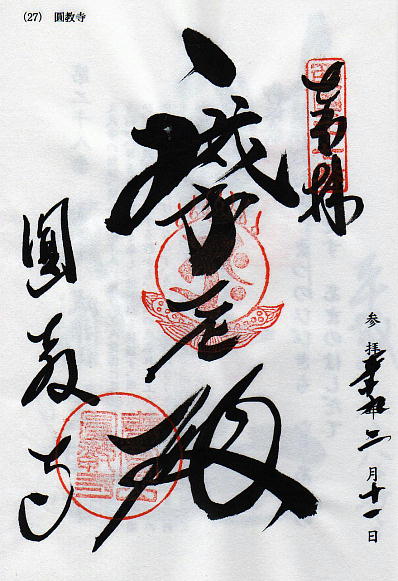 (27) 圓教寺
奉拝
摩尼殿
圓教寺
参拝 年二月十一日